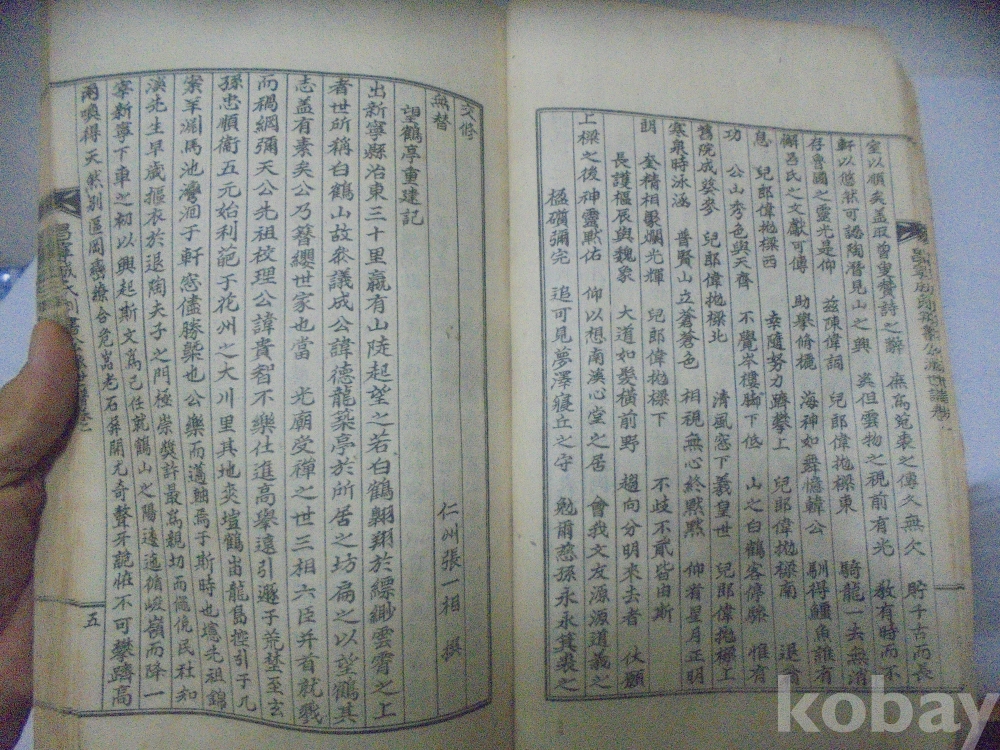 室以順矣盖取曾重營詩之辭 庶爲菟裘之傳久無欠 貯千古而長
軒以悠然可認陶潛見山之興 奚但雲物之視前有光 教有時而不
存魯國之靈光是仰 玆陳偉詞 兒郎偉抛樑東 騎龍一去無消
懈呂氏之文獻可傳 助擧脩欐 海神如舞憶韓公 馴得鱷魚誰有
息 兒郎偉抛樑西 幸隨努力躋攀上 兒郎偉抛樑南 退食
功 公山秀色與天齊 不覺岑樓脚下低 山之白鶴客停驂 惟有
舊院成葵麥 兒郎偉抛樑北 淸風窓下義皇世 兒郎偉抛樑上
寒泉時泳涵 普賢山立蒼蒼色 相視無心終黙黙 仰看星月正明
朗 奎精相聚爛光輝 兒郎偉抛樑下 不歧不貳皆由斯
長護樞辰與魏象 大道如髮橫前野 趨向分明來去者 伏願
上樑之後神靈黙佑 仰以想南溟心堂之居 會我文友源源道義之
楹礩彌完 追可見夢澤寢丘之守 勉爾慈孫永永箕裘之
交修
無替
望鶴亭重建記
仁州張一相 撰
出新寧縣治東三十里嬴有山陡起望之若白鶴翱翔於縹緲雲霄之上
者世所稱白鶴山故叅議成公諱德龍築亭於所居之坊扁之以望鶴其
志益有素矣公乃簪纓世家也當 光廟受禪之世三相六臣幷首就戮
而稠網彌天公先祖校理公諱貴智不樂仕進高擧遠引遯于荒埜至玄
孫忠順衛五元始利葩于花州之大川里其地爽塏鶴峀龍島控引于几
案羊淵馬池灣洄于軒窓儘勝槩也公樂而邁軸焉于斯時也
溪先生早歲摳衣於退陶夫子之門極崇奬許最爲親切而
宰新寧下車之初以興起斯文爲己任就鶴山之陽逶迤循峻嶺而降一
兩喚得天然別區岡巒繚合危嵓老石屛開尤奇聱牙詭怪不可攀躋高
五